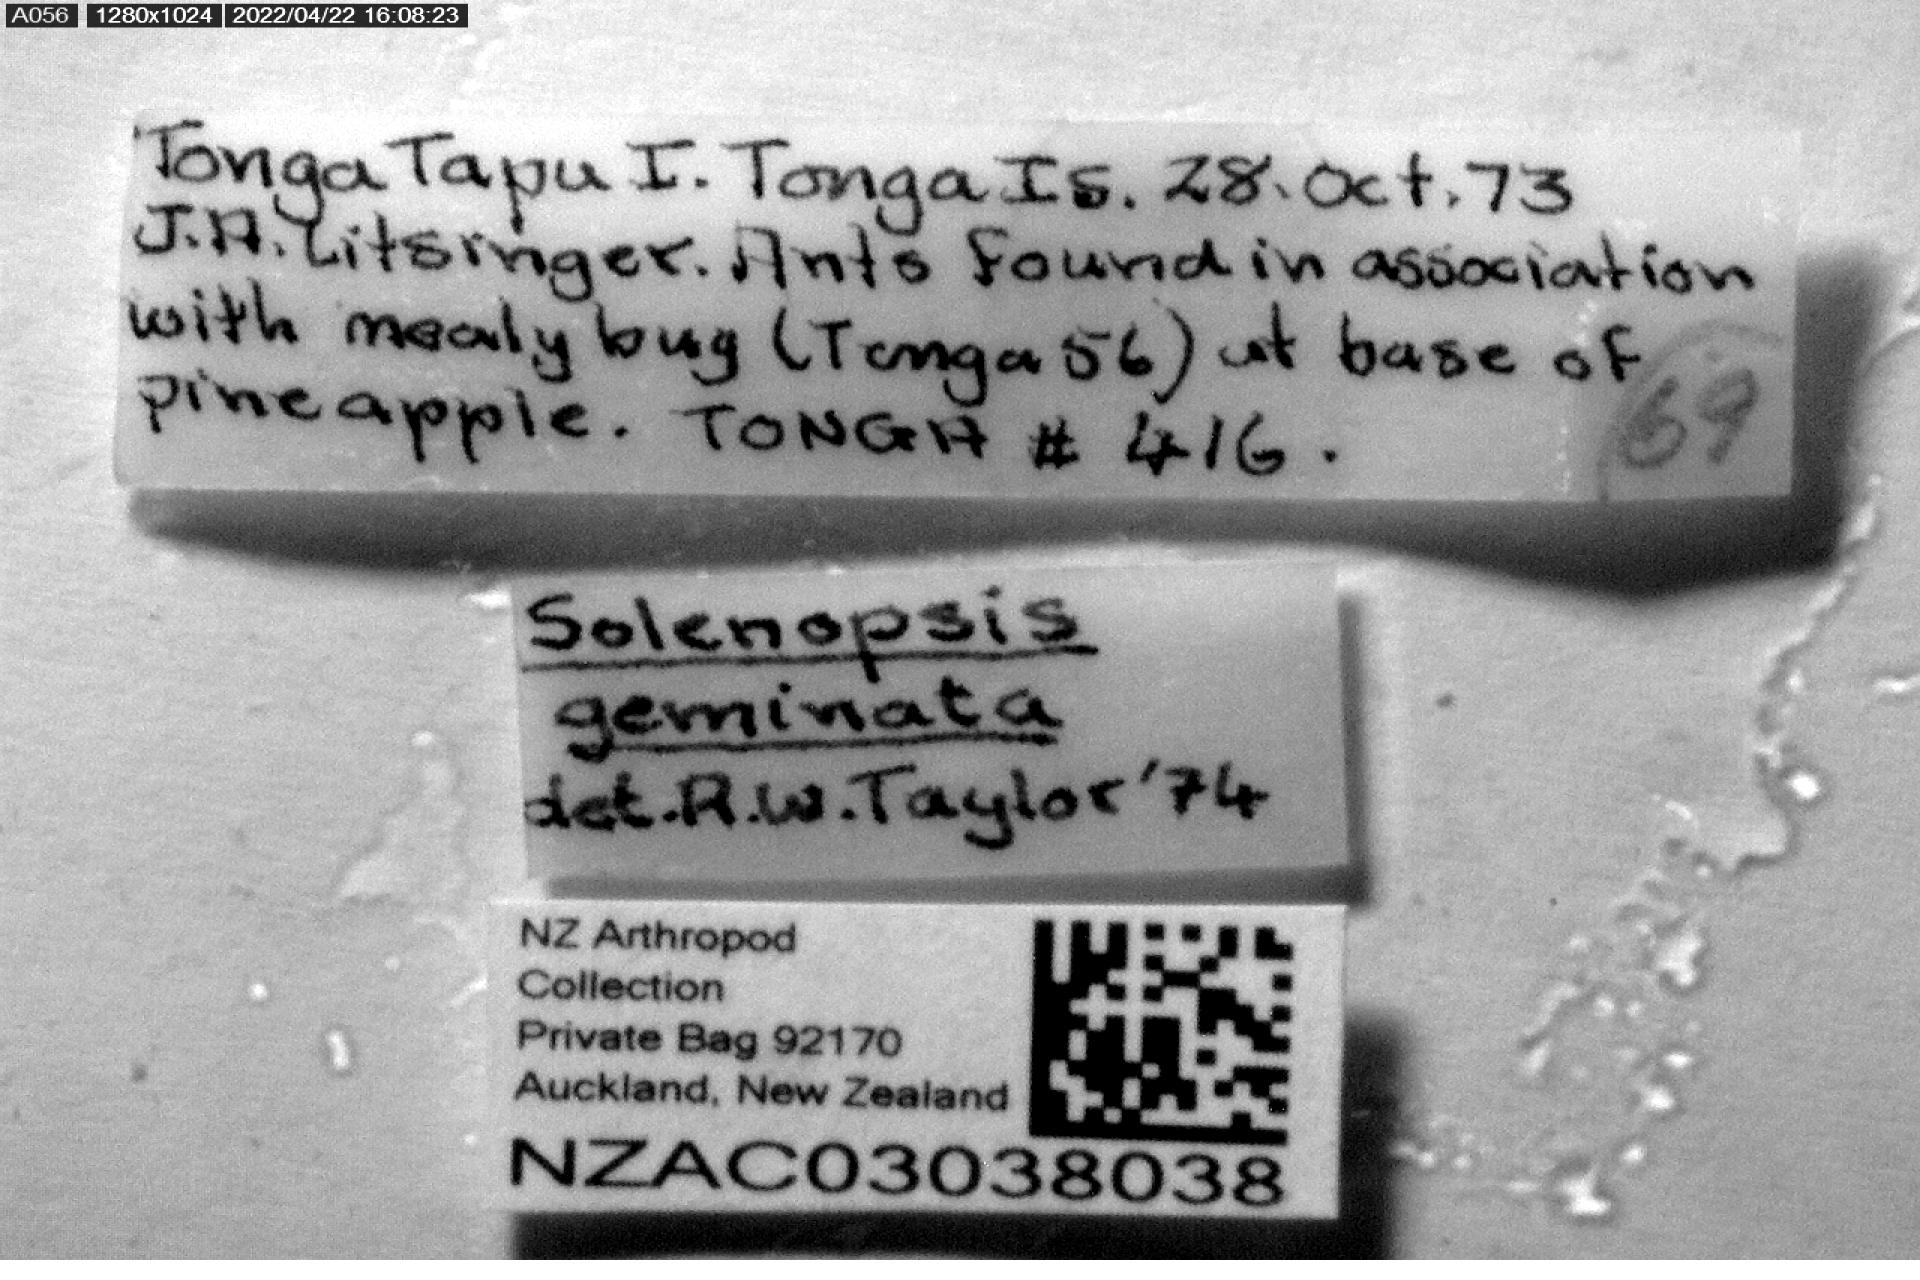 A056 1280x1024 2022/04/22 16:08:23
Tonga Tapu I. Tonga Is. 28. Oct. 73
J.A. Litsinger. Ants found in association
with mealy bug (Tonga 56) at base of
pineapple. TONGA # 416.
69
Solenopsis
geminata
det. R.W. Taylor '74
NZ Arthropod
Collection
Private Bag 92170
Auckland, New Zealand
NZAC03038038